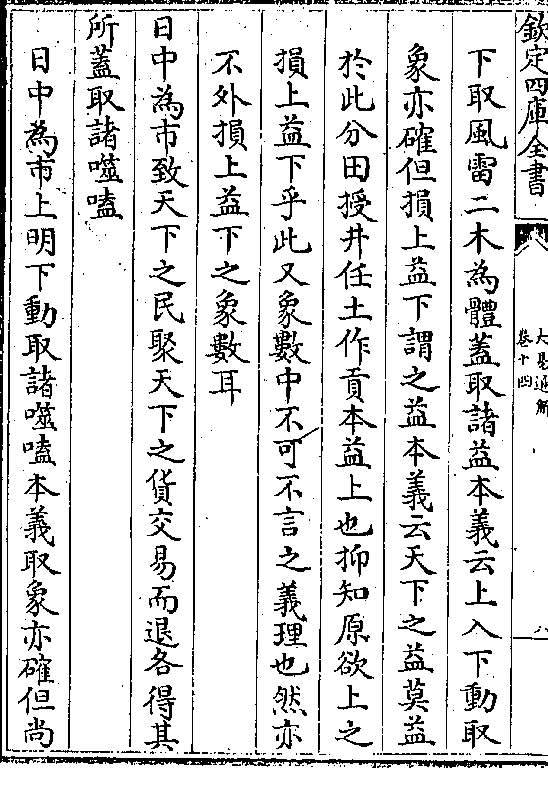 欽定四庫全書
大易通解
卷十四
八
下取風雷二木為體蓋取諸益本義云上入下動取
象亦確但損上益下謂之益本義云天下之益莫益
於此分田授井任土作貢本益上也抑知原欲上之
損上益下乎此又象數中不可不言之義理也然亦
不外損上益下之象數耳
日中為市致天下之民聚天下之貨交易而退各得其
所蓋取諸噬嗑
日中為市上明下動取諸噬嗑本義取象亦確但尚